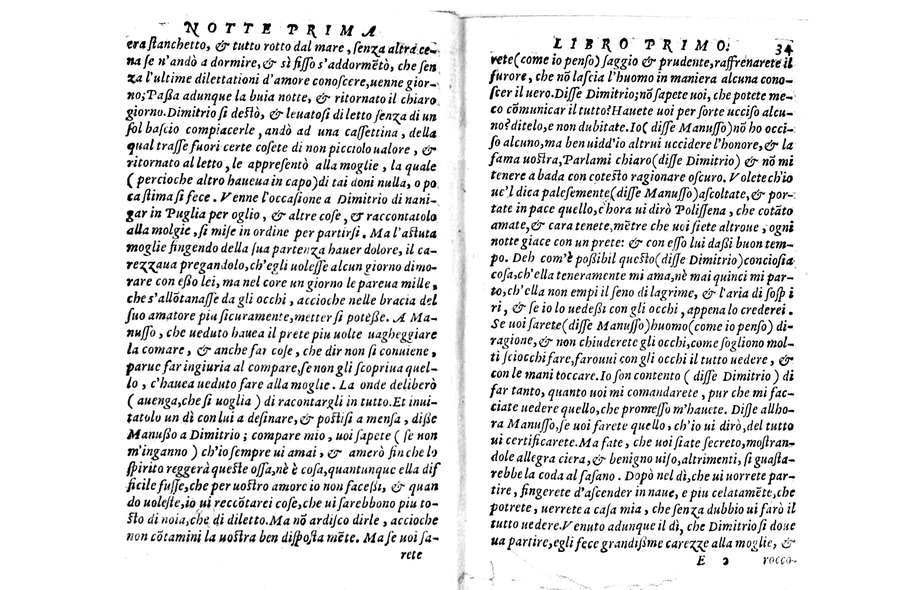 NOTTE PRIMA
era ſtanchetto, & tutto rotto dal mare, ſenza altra ce-
na ſe n'andò a dormire, & sì fiſſo s'addormẽtò, che ſen
za l'ultime dilettationi d'amore conoſcere, uenne gior-
no; Paſſa adunque la buia notte, & ritornato il chiaro
giorno. Dimitrio ſi deſtò, & leuatoſi di letto ſenza di un
ſol baſcio compiacerle, andò ad una caſſettina, della
qual traſſe fuori certe coſete di non picciolo ualore, &
ritornato al letto, le appreſentò alla moglie, la quale
( percioche altro haueua in capo) di tai doni nulla, o po
ca ſtima ſi fece. Venne l'occaſione a Dimitrio di naui-
gar in Puglia per oglio, & altre coſe, & raccontatolo
alla molgie, ſi miſe in ordine per partirſi. Ma l'aſtuta
moglie fingendo della ſua partenza hauer dolore, il ca-
rezzaua pregandolo, ch'egli uoleſſe alcun giorno dimo-
rare con eſſo lei, ma nel core un giorno le pareua mille,
che s'allõtanaſſe da gli occhi, accioche nelle bracia del
ſuo amatore piu ſicuramente, metter ſi poteſſe. A Ma-
nuſſo, che ueduto hauea il prete piu uolte uagheggiare
la comare, & anche far coſe, che dir non ſi conuiene,
parue far ingiuria al compare, ſe non gli ſcopriua quel-
lo, c'hauea ueduto fare alla moglie. La onde deliberò
( auenga, che ſi uoglia ) di racontargli in tutto. Et inui-
tatolo un dì con lui a deſinare, & poſtiſi a menſa, diſſe
Manuſſo a Dimitrio; compare mio, uoi ſapete ( ſe non
m'inganno ) ch'io ſempre ui amai, & amerò fin che lo
ſpirito reggerà queſte oſſa, nè è coſa, quantunque ella dif
ficile fuſſe, che per uoſtro amore io non faceſſi, & quan
do uoleſte, io ui reccõtarei coſe, che ui ſarebbono piu to-
ſto di noia, che di diletto. Ma nõ ardiſco dirle, accioche
non cõtamini la uoſtra ben diſpoſta mẽte. Ma ſe uoi ſa-
rete
LIBRO PRIMO. 34
rete (come io penſo) ſaggio & prudente, raffrenarete il
furore, che nõ laſcia l'huomo in maniera alcuna cono-
ſcer il uero. Diſſe Dimitrio; nõ ſapete uoi, che potete me-
co cõmunicar il tutto? Hauete uoi per ſorte ucciſo alcu-
no? ditelo, e non dubitate. Io ( diſſe Manuſſo) nõ ho occi-
ſo alcuno, ma ben uidd'io altrui uccidere l'honore, & la
fama uoſtra, Parlami chiaro (diſſe Dimitrio) & nõ mi
tenere a bada con coteſto ragionare oſcuro. Volete ch'io
ue'l dica paleſemente (diſſe Manuſſo) aſcoltate, & por-
tate in pace quello, c'hora ui dirò Poliſſena, che cotãto
amate, & cara tenete, mẽtre che uoi ſiete altroue, ogni
notte giace con un prete: & con eſſo lui daſſi buon tem-
po. Deh com'è poſſibil queſto (diſſe Dimitrio) concioſia
coſa, ch'ella teneramente mi ama, nè mai quinci mi par-
to, ch'ella non empi il ſeno di lagrime, & l'aria di ſoſp i
ri, & ſe io lo uedeſſi con gli occhi, appena lo crederei.
Se uoi ſarete (diſſe Manuſſo) huomo (come io penſo) di-
ragione, & non chiuderete gli occhi, come ſogliono mol-
ti ſciocchi fare, faroui con gli occhi il tutto uedere, &
con le mani toccare. Io ſon contento ( diſſe Dimitrio ) di
far tanto, quanto uoi mi comandarete, pur che mi fac-
ciate uedere quello, che promeſſo m'hauete. Diſſe allho-
ra Manuſſo, ſe uoi farete quello, ch'io ui dirò, del tutto
ui certificarete. Ma fate, che uoi ſiate ſecreto, moſtran-
dole allegra ciera, & benigno uiſo, altrimenti, ſi guaſta-
rebbe la coda al faſano. Dopò nel dì, che ui uorrete par-
tire, fingerete d'aſcender in naue, e piu celatamẽte, che
potrete, uerrete a caſa mia, che ſenza dubbio ui farò il
tutto uedere. Venuto adunque il dì, che Dimitrio ſi doue
ua partire, egli fece grandiſſime carezze alla moglie, &
E 2 rocco-